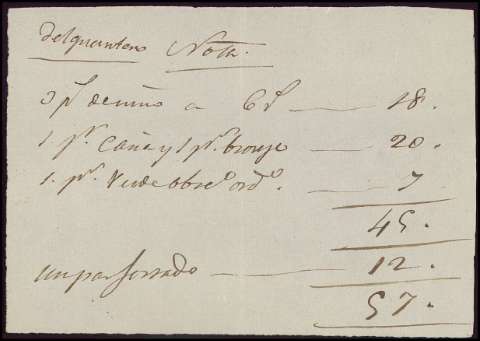 del guantero Nota.
3 ps. de niño a 6 rs. 18.
1 pr. Caña y 1 pr. bronze 20.
1. pr. Verde obro. ordo. 7
45.
un par forrado 12.
57.